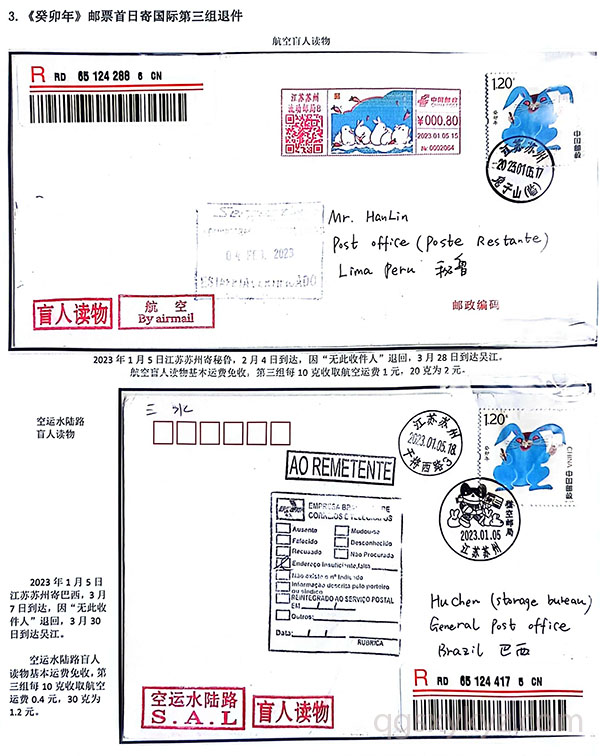 3. 《癸卯年》邮票首日寄国际第三组退件
航空盲人读物
R RD 65 124 288 6 CN
江苏苏州
中国邮政
¥000.80
2023 01 05 15
№ 0002064
1.20
癸卯年
中国邮政
江苏苏州
2023.01.05.17
04 FEB 2023
Mr. HanLin
Post office (Poste Restante)
Lima Peru 秘鲁
邮政编码
盲人读物
航空
By airmail
2023 年 1 月 5 日江苏苏州寄秘鲁，2 月 4 日到达，因“无此收件人”退回，3 月 28 日到达吴江。
航空盲人读物基本运费免收，第三组每 10 克收取航空运费 1 元，20 克为 2 元。
空运水陆路
盲人读物
三 水
江苏苏州
2023.01.05.18
干将西路
1.20
CHINA 中国邮政
AO REMETENTE
EMPRESA BRASILEIRA DE
CORREIOS E TELÉGRAFOS
Ausente
Mudou-se
Falecido
Desconhecido
Recusado
Não Procurado
Endereço Insuficiente, falta
Não existe o nº indicado
Informação descrita pelo porteiro
ou síndico
REINTEGRADO AO SERVIÇO POSTAL
EM / /
Outros:
Data: / /
RUBRICA
邮局
2023.01.05
江苏苏州
2023 年 1 月 5 日
江苏苏州寄巴西，3 月
7 日到达，因“无此收
件人”退回，3 月 30
日到达吴江。
空运水陆路盲人
读物基本运费免收，第
三组每 10 克收取航空
运费 0.4 元，30 克为
1.2 元。
Hu Chen (storage bureau)
General Post office
Brazil 巴西
R RD 65 124 417 5 CN
空运水陆路
S.A.L
盲人读物